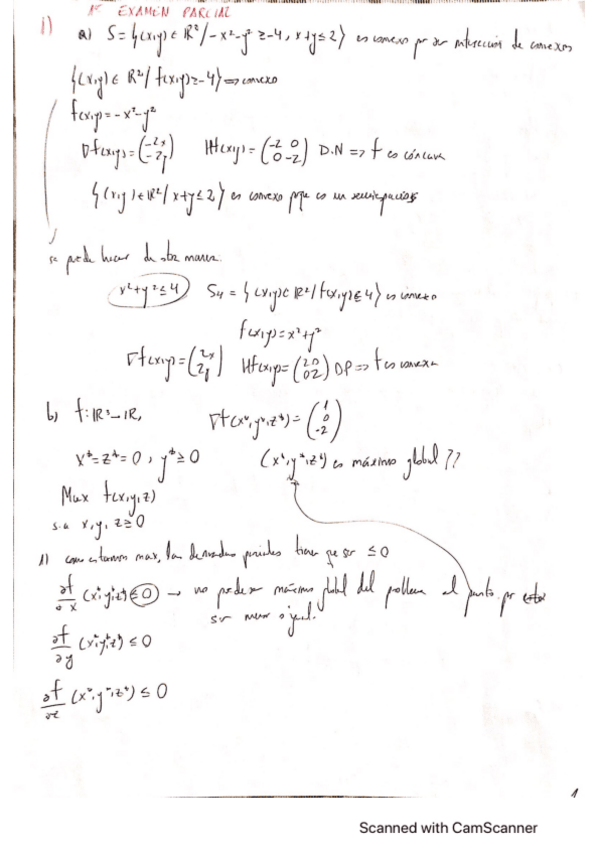 1º EXAMEN PARCIAL
1) a) S = {(x,y) ∈ ℝ² / -x²-y² ≥ -4, x+y ≤ 2} es convexo por ser intersección de convexos
{(x,y) ∈ ℝ² / f(x,y) ≥ -4} ⇒ convexo
f(x,y) = -x²-y²
∇f(x,y) = (-2x -2y) Hf(x,y) = (-2 0 0 -2) D.N ⇒ f es cóncava
{(x,y) ∈ ℝ² / x+y ≤ 2} es convexo pque es un semiespacio
se puede hacer de otra manera:
x²+y² ≤ 4 S₄ = {(x,y) ∈ ℝ² / f(x,y) ≤ 4} es convexo
f(x,y) = x²+y²
∇f(x,y) = (2x 2y) Hf(x,y) = (2 0 0 2) DP ⇒ f es convexa
b) f: ℝ³→ℝ, ∇f(x*,y*,z*) = (1 0 -2)
x*=z*=0, y*≥0 (x*,y*,z*) es máximo global ??
Max f(x,y,z)
s.a x,y,z ≥ 0
1) como estamos max, las derivadas parciales tienen que ser ≤ 0
∂f/∂x (x*,y*,z*) ≤ 0 → no puede ser máximo global del problema el punto por
ser menor o igual.
∂f/∂y (x*,y*,z*) ≤ 0
∂f/∂z (x*,y*,z*) ≤ 0
1
Scanned with CamScanner